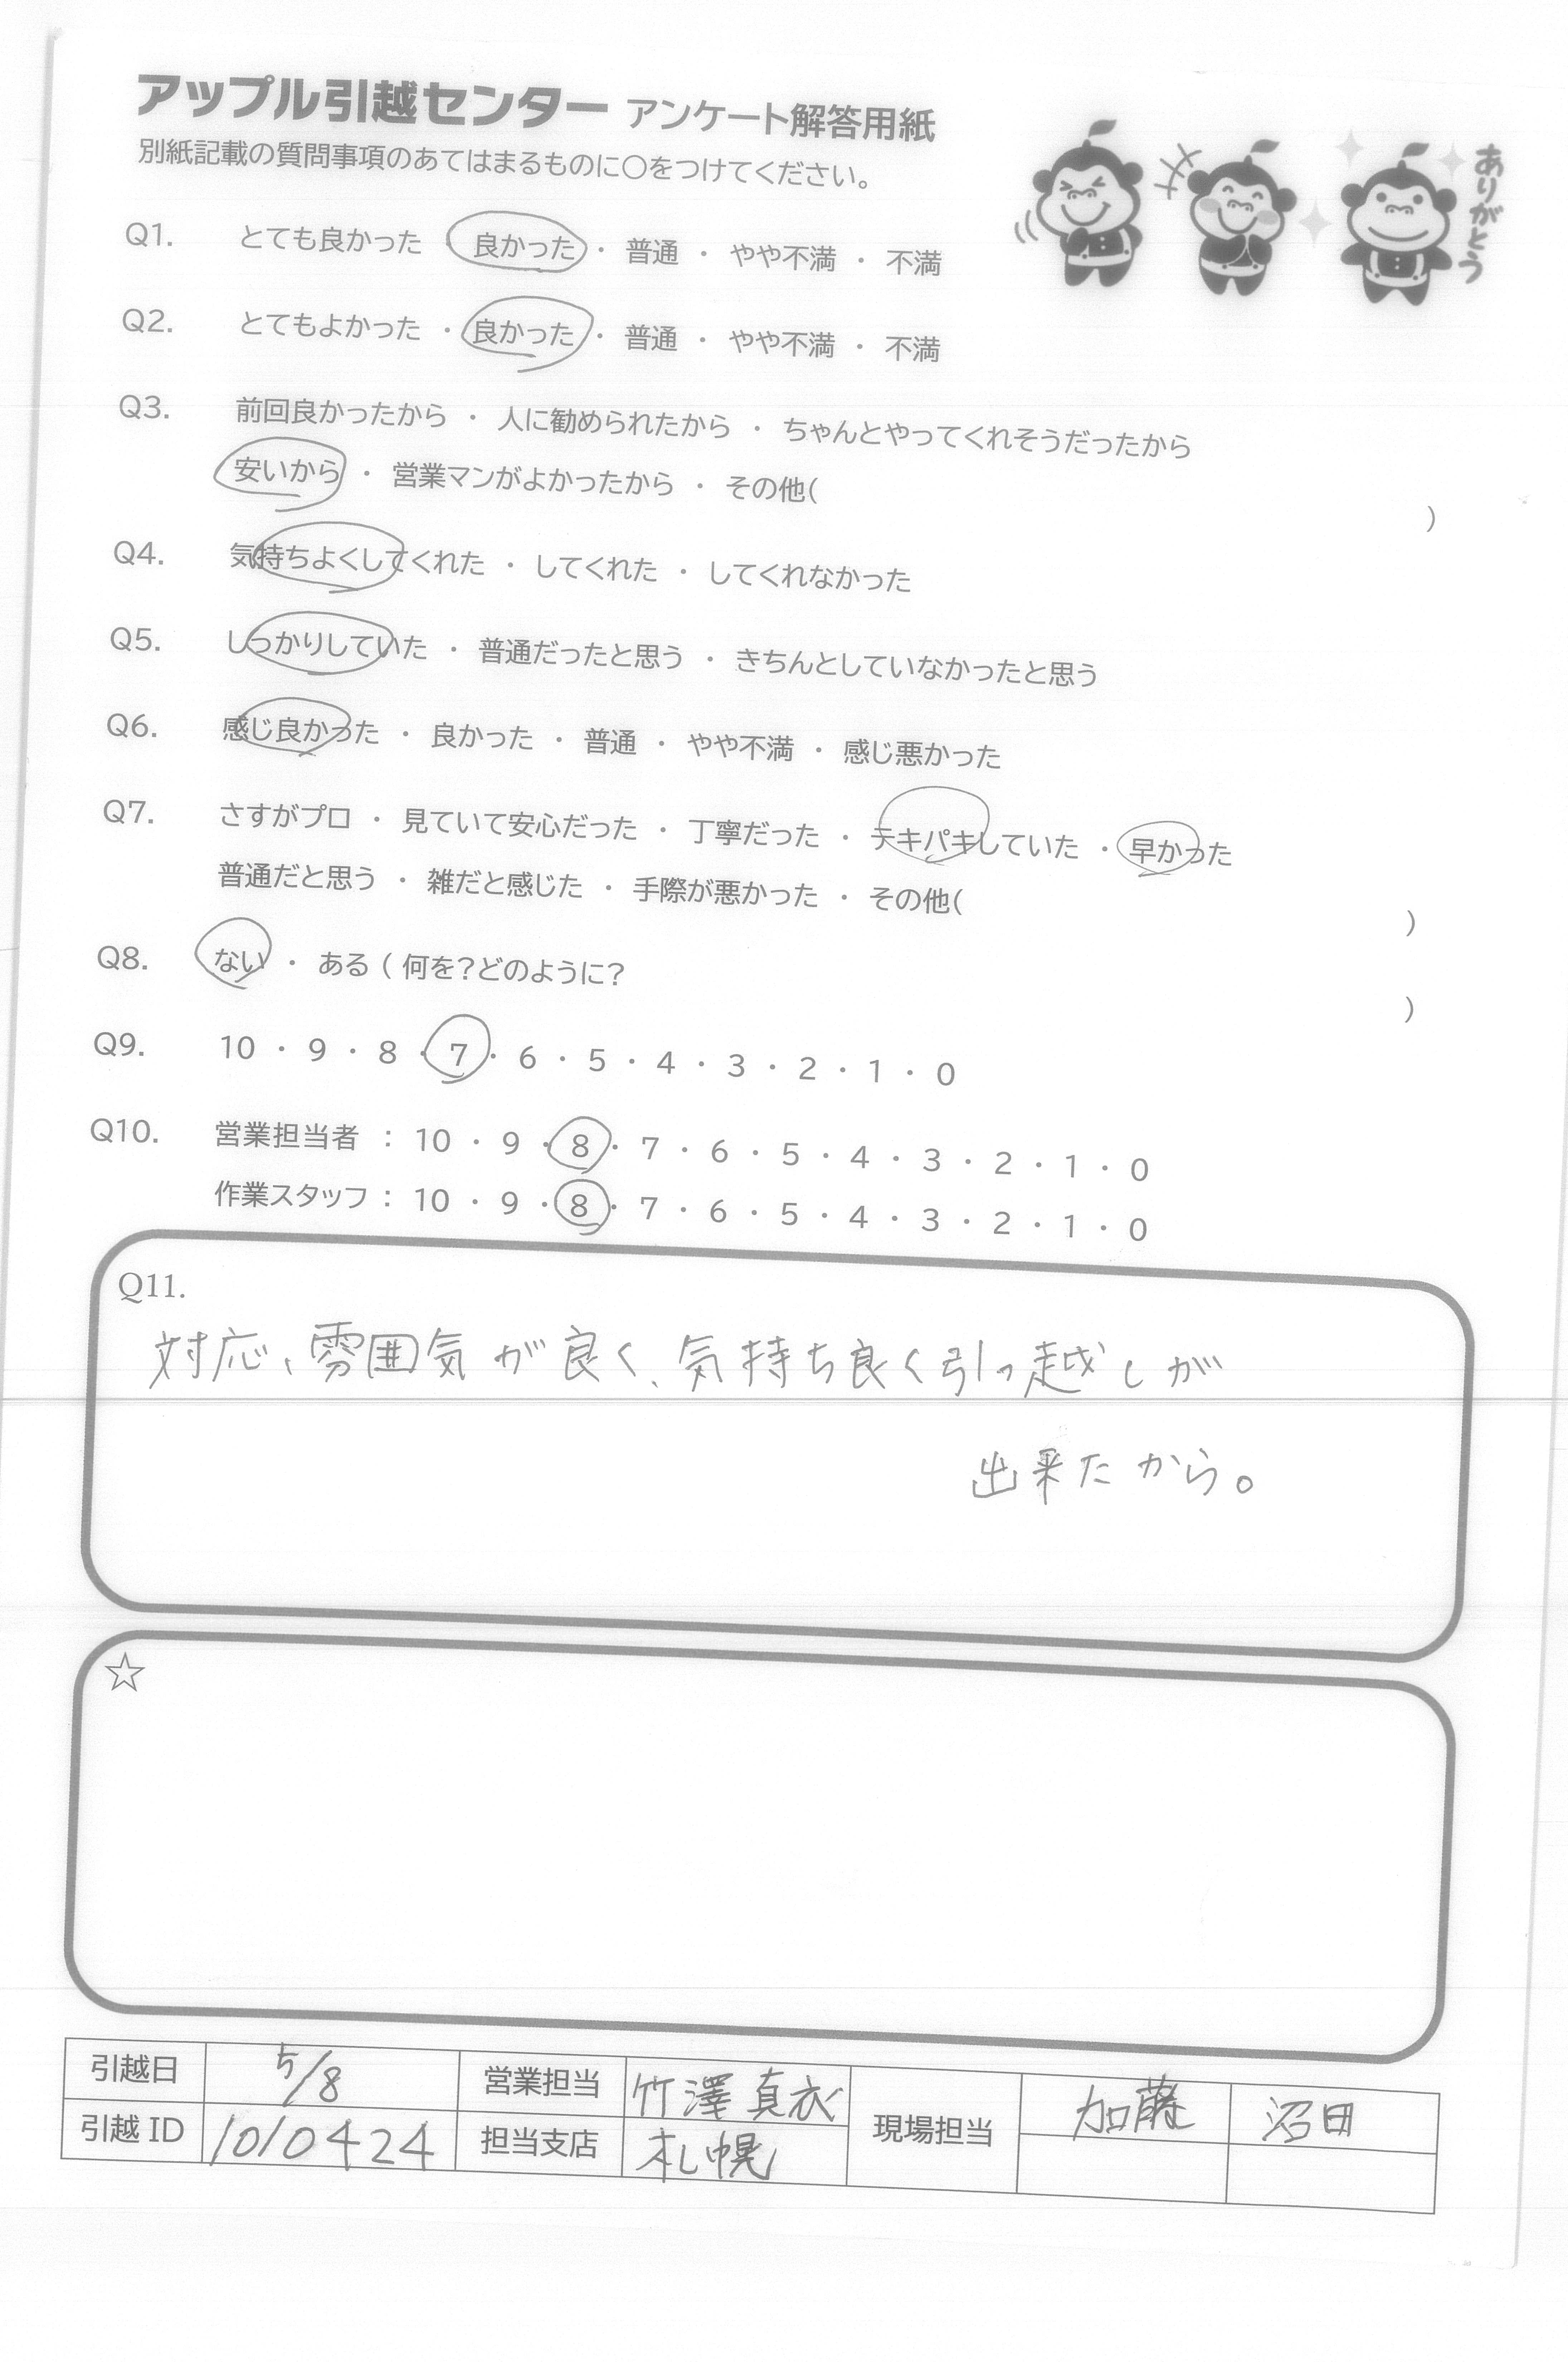 アップル引越センター アンケート解答用紙
別紙記載の質問事項のあてはまるものに○をつけてください。
ありがとう
Q1. とても良かった ・ 良かった ・ 普通 ・ やや不満 ・ 不満
Q2. とてもよかった ・ 良かった ・ 普通 ・ やや不満 ・ 不満
Q3. 前回良かったから ・ 人に勧められたから ・ ちゃんとやってくれそうだったから
安いから ・ 営業マンがよかったから ・ その他( )
Q4. 気持ちよくしてくれた ・ してくれた ・ してくれなかった
Q5. しっかりしていた ・ 普通だったと思う ・ きちんとしていなかったと思う
Q6. 感じ良かった ・ 良かった ・ 普通 ・ やや不満 ・ 感じ悪かった
Q7. さすがプロ ・ 見ていて安心だった ・ 丁寧だった ・ テキパキしていた ・ 早かった
普通だと思う ・ 雑だと感じた ・ 手際が悪かった ・ その他( )
Q8. ない ・ ある ( 何を?どのように? )
Q9. 10 ・ 9 ・ 8 ・ 7 ・ 6 ・ 5 ・ 4 ・ 3 ・ 2 ・ 1 ・ 0
Q10. 営業担当者 : 10 ・ 9 ・ 8 ・ 7 ・ 6 ・ 5 ・ 4 ・ 3 ・ 2 ・ 1 ・ 0
作業スタッフ : 10 ・ 9 ・ 8 ・ 7 ・ 6 ・ 5 ・ 4 ・ 3 ・ 2 ・ 1 ・ 0
Q11.
対応、雰囲気が良く、気持ち良く引っ越しが
出来たから。
☆
引越日 5/8 営業担当 竹澤真衣 現場担当 加藤 沼田
引越 ID 1010424 担当支店 札幌